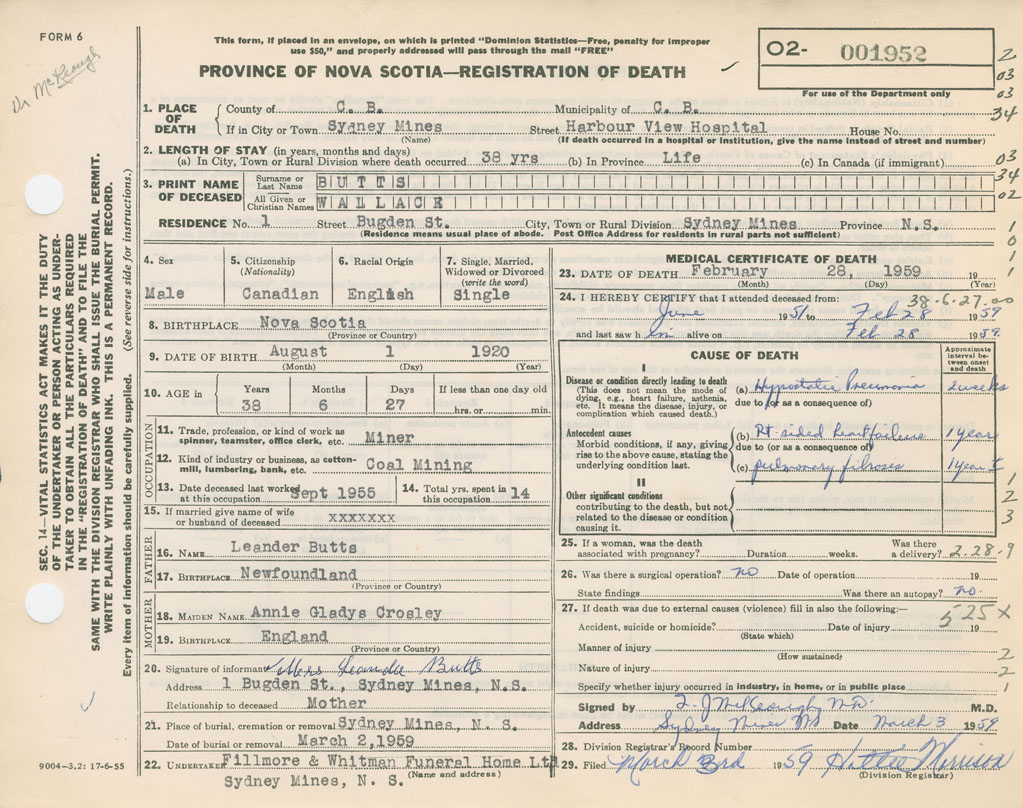 FORM 6
This form, if placed in an envelope, on which is printed "Dominion Statistics—Free, penalty for improper
use $50," and properly addressed will pass through the mail "FREE"
PROVINCE OF NOVA SCOTIA—REGISTRATION OF DEATH
O2- 001952
For use of the Department only
Dr McKeough
2
03
03
34
03
34
02
1
0
1
1
1. PLACE OF DEATH
County of C. B. Municipality of C. B.
If in City or Town Sydney Mines Street Harbour View Hospital House No.
(Name) (If death occurred in a hospital or institution, give the name instead of street and number)
2. LENGTH OF STAY (in years, months and days)
(a) In City, Town or Rural Division where death occurred 38 yrs (b) In Province Life (c) In Canada (if immigrant)
3. PRINT NAME OF DECEASED
Surname or Last Name BUTTS
All Given or Christian Names WALLACE
RESIDENCE No. 1 Street Bugden St. City, Town or Rural Division Sydney Mines Province N.S.
(Residence means usual place of abode. Post Office Address for residents in rural parts not sufficient)
SEC. 14—VITAL STATISTICS ACT MAKES IT THE DUTY
OF THE UNDERTAKER OR PERSON ACTING AS UNDER-
TAKER TO OBTAIN ALL THE PARTICULARS REQUIRED
IN THE "REGISTRATION OF DEATH" AND TO FILE THE
SAME WITH THE DIVISION REGISTRAR WHO SHALL ISSUE THE BURIAL PERMIT.
WRITE PLAINLY WITH UNFADING INK. THIS IS A PERMANENT RECORD.
Every item of information should be carefully supplied. (See reverse side for instructions.)
4. Sex Male
5. Citizenship (Nationality) Canadian
6. Racial Origin English
7. Single, Married, Widowed or Divorced (write the word) Single
8. BIRTHPLACE Nova Scotia
(Province or Country)
9. DATE OF BIRTH August 1 1920
(Month) (Day) (Year)
10. AGE in Years 38 Months 6 Days 27 If less than one day old hrs. or min.
OCCUPATION
11. Trade, profession, or kind of work as
spinner, teamster, office clerk, etc. Miner
12. Kind of industry or business, as cotton-
mill, lumbering, bank, etc. Coal Mining
13. Date deceased last worked
at this occupation Sept 1955
14. Total yrs. spent in
this occupation 14
15. If married give name of wife
or husband of deceased xxxxxxx
FATHER
16. NAME Leander Butts
17. BIRTHPLACE Newfoundland
(Province or Country)
MOTHER
18. MAIDEN NAME Annie Gladys Crosley
19. BIRTHPLACE England
(Province or Country)
20. Signature of informant Mrs Leander Butts
Address 1 Bugden St., Sydney Mines, N.S.
Relationship to deceased Mother
21. Place of burial, cremation or removal Sydney Mines, N. S.
Date of burial or removal March 2,1959
22. UNDERTAKER Fillmore & Whitman Funeral Home Ltd
Sydney Mines, N. S. (Name and address)
9004—3.2: 17-6-55
MEDICAL CERTIFICATE OF DEATH
23. DATE OF DEATH February 28, 1959 19
(Month) (Day) (Year)
38-6-27-00
24. I HEREBY CERTIFY that I attended deceased from:
June 1951 to Feb 28 1959
and last saw him alive on Feb 28 1959
CAUSE OF DEATH
Approximate interval between onset and death
I
Disease or condition directly leading to death
(This does not mean the mode of
dying, e.g., heart failure, asthenia,
etc. It means the disease, injury, or
complication which caused death.)
(a) Hypostatic Pneumonia 2 weeks
due to (or as a consequence of)
Antecedent causes
Morbid conditions, if any, giving
rise to the above cause, stating the
underlying condition last.
(b) Rt sided heart failure 1 year
due to (or as a consequence of)
(c) pulmonary fibrosis 1 year +
II
Other significant conditions
contributing to the death, but not
related to the disease or condition
causing it.
1
2
3
25. If a woman, was the death
associated with pregnancy? Duration weeks. Was there a delivery?
2-28-9
26. Was there a surgical operation? no Date of operation 19
State findings Was there an autopsy? no.
27. If death was due to external causes (violence) fill in also the following:—
525x
Accident, suicide or homicide? Date of injury 19
(State which)
Manner of injury
(How sustained)
Nature of injury
Specify whether injury occurred in industry, in home, or in public place
2
2
1
Signed by T. J McKeough M.D. M.D.
Address Sydney Mines NS Date March 3 1959
28. Division Registrar's Record Number
29. Filed March 3rd 1959 Hattie Morrison
(Division Registrar)